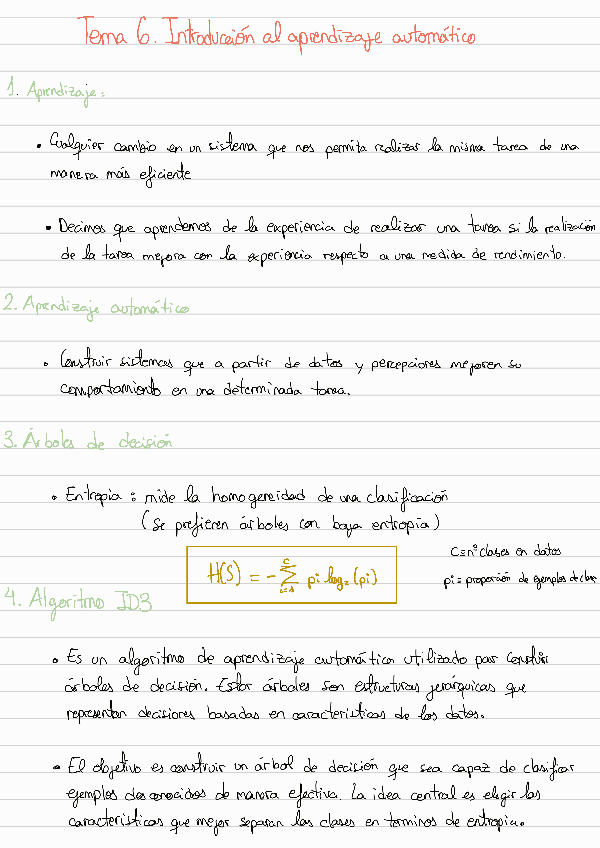 Tema 6. Introducción al aprendizaje automático
1. Aprendizaje:
• Cualquier cambio en un sistema que nos permita realizar la misma tarea de una
manera más eficiente
• Decimos que aprendemos de la experiencia de realizar una tarea si la realización
de la tarea mejora con la experiencia respecto a una medida de rendimiento.
2. Aprendizaje automático
• Construir sistemas que a partir de datos y percepciones mejoren su
comportamiento en una determinada tarea.
3. Árboles de decisión
• Entropia : mide la homogeneidad de una clasificación
(Se prefieren árboles con baja entropía)
H(S) = - ∑ᶜᵢ₌₁ pi log₂ (pi)
C = nº clases en datos
pi = proporción de ejemplos de clase
4. Algoritmo ID3
• Es un algoritmo de aprendizaje automático utilizado par construir
árboles de decisión. Estos árboles son estructuras jerárquicas que
representan decisiones basadas en características de los datos.
• El objetivo es construir un árbol de decisión que sea capaz de clasificar
ejemplos desconocidos de manera efectiva. La idea central es elegir las
características que mejor separan las clases en terminos de entropia.